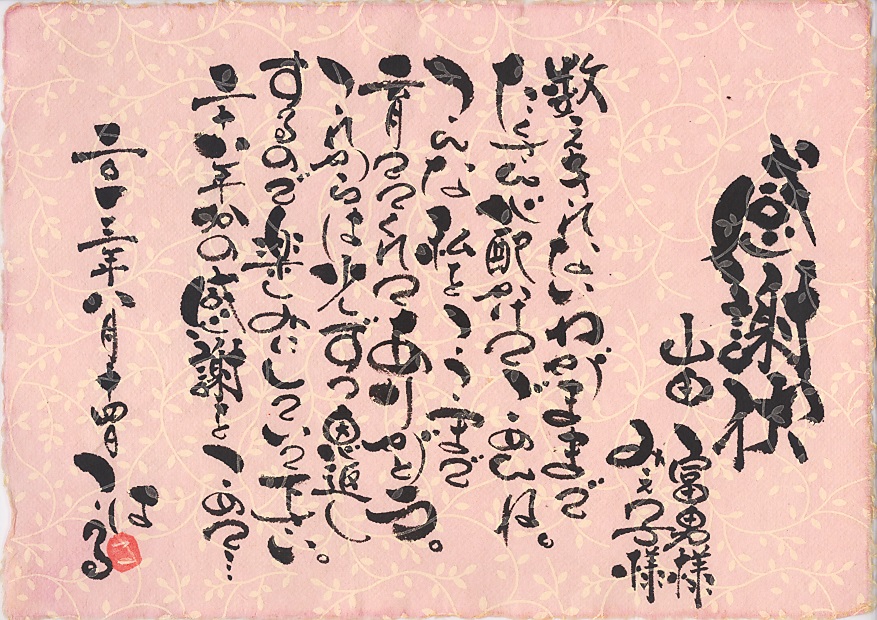 感謝状
山田 富男様
みさ子様
数えきれないわがままで
たくさん心配かけてごめんね。
こんな私をここまで
育ててくれてありがとう。
これからは少しずつ恩返し
するので楽しみにしていて下さい。
二十八年分の感謝をこめて…
二〇一三年八月二十四日